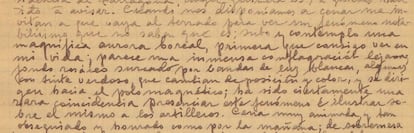 tido á avisar. Cuando nos disponíamos a cenar me in-
vitan a que vaya al terrado para ver un fenómeno nota-
bilísimo que no saben qué es; subo y contemplo una
magnífica aurora boreal, primera que consigo ver en
mi vida; parece una inmensa conflagración lejana,
fondo rosáceo surcado por bandas de luz blanca, algunas
con tinte verdoso que cambian de posición y color, se diri-
gen hacia el polo magnético; ha sido ciertamente una
rara coincidencia presenciar este fenómeno é ilustrar so-
bre el mismo a los artilleros. Cena muy animada y tan
obsequiado y honrado como por la mañana; de sobremesa